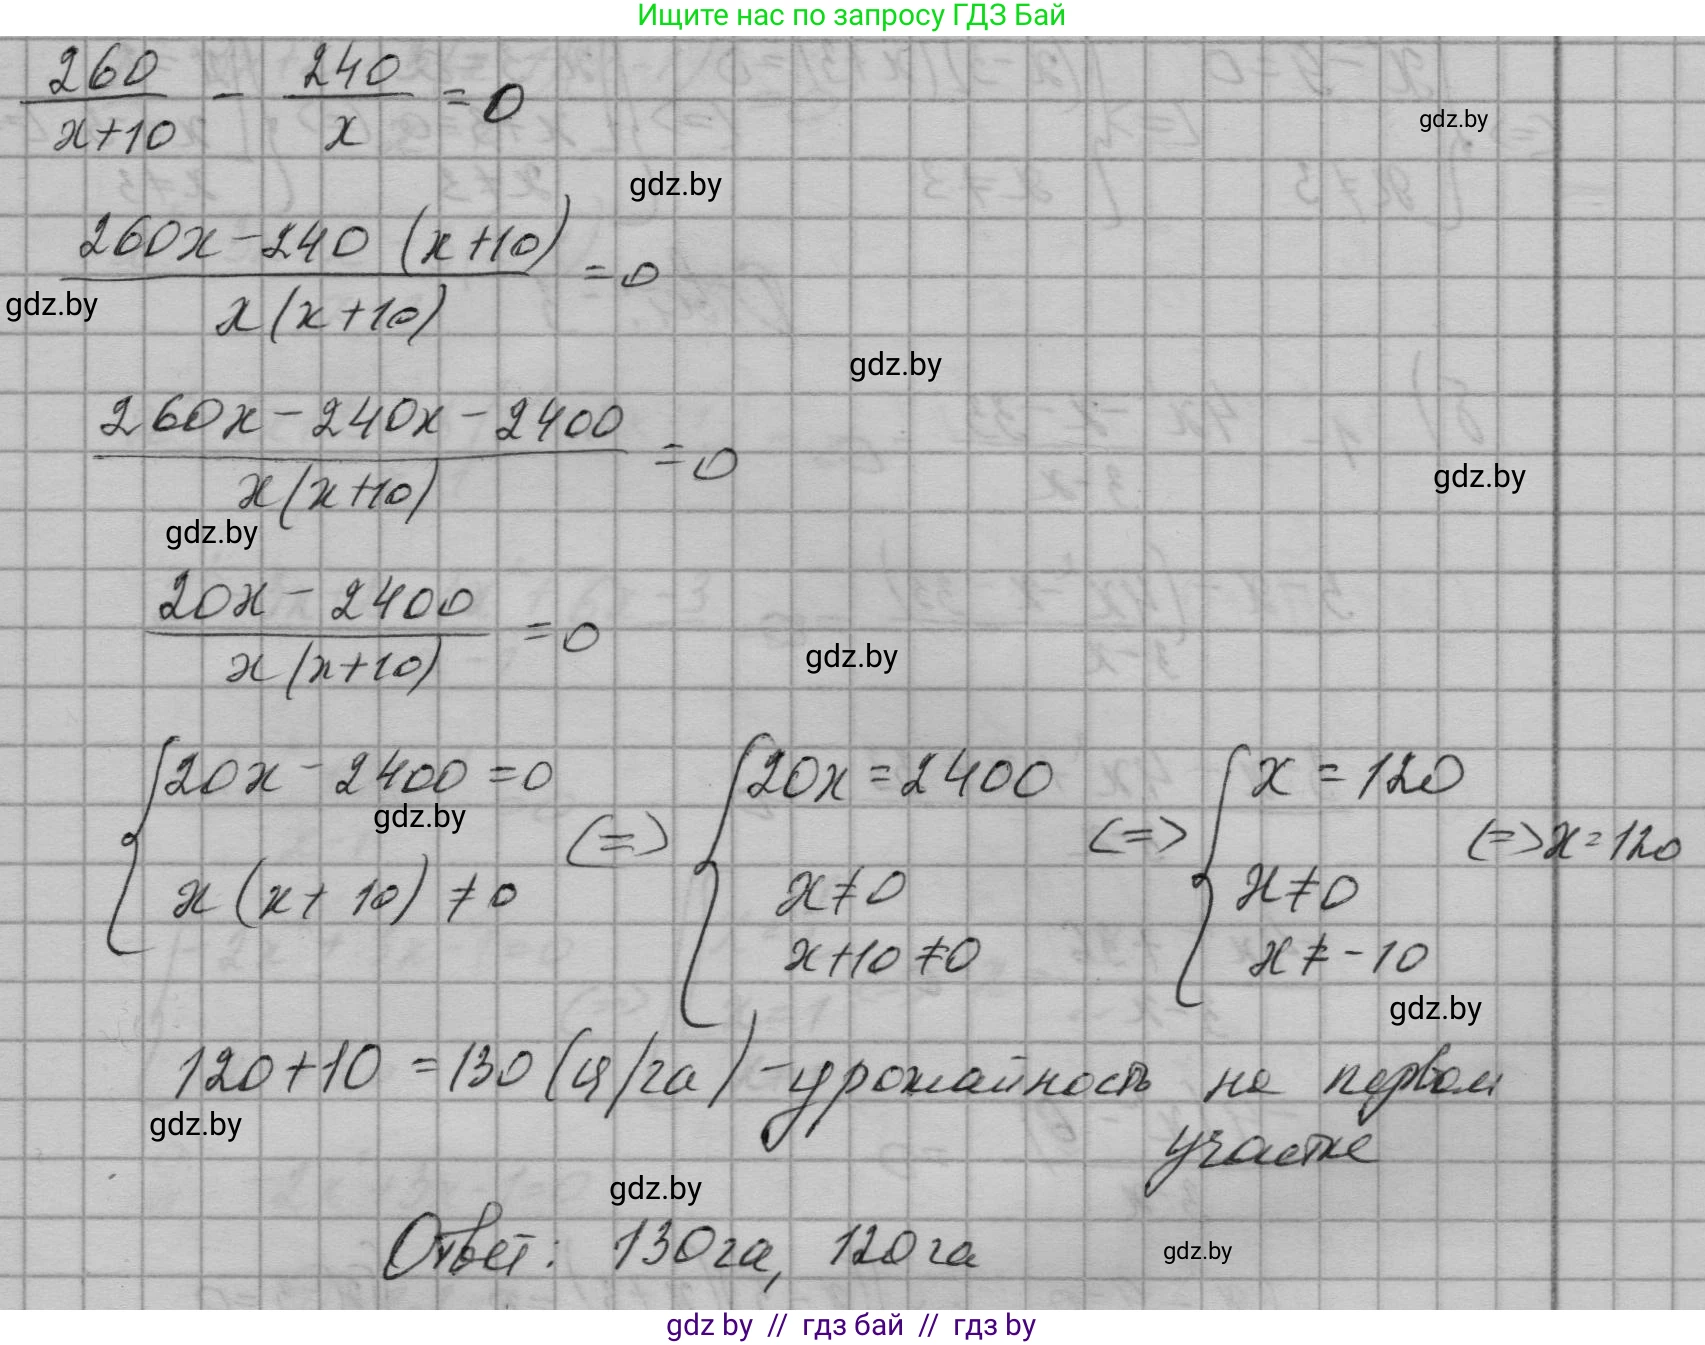 Ищите нас по запросу ГДЗ Бай
260/(x+10) - 240/x = 0
gdz.by
gdz.by
(260x - 240 (x+10))/(x(x+10)) = 0
gdz.by
gdz.by
(260x - 240x - 2400)/(x(x+10)) = 0
gdz.by
gdz.by
(20x - 2400)/(x(x+10)) = 0
gdz.by
{20x - 2400 = 0 (=) {20x = 2400 (=> {x = 120 (=> x = 120
gdz.by
x(x+10) ≠ 0 x ≠ 0 x ≠ 0
x+10 ≠ 0 x ≠ -10
gdz.by
120+10 = 130 (ц/га) - урожайность на первом
gdz.by
участке
gdz.by
Ответ: 130 га, 120 га
gdz.by
gdz by // гдз бай // гдз by